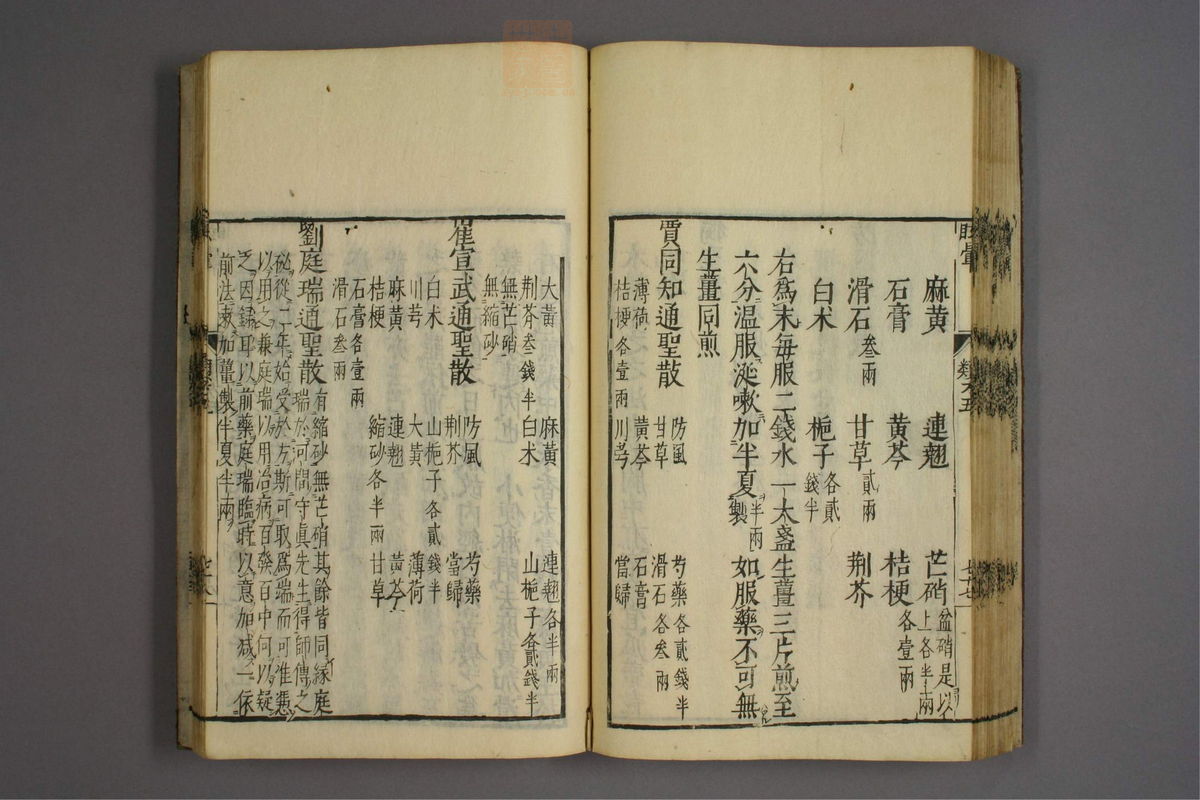 麻黃 連翹 芒硝 盆硝是以上各半兩
石膏 黃芩 桔梗 各壹兩
滑石 叁兩 甘草 貳兩 荆芥
白朮 梔子 各貳錢半
右為末每服二錢水一大盞生薑三片煎至
六分温服涎嗽加半夏半兩製如服藥不可無
生薑同煎
賈同知通聖散 防風 芍藥各貳錢半
甘草 滑石各叁兩
薄荷 黃芩 石膏
桔梗各壹兩 川芎 當歸
大黃 麻黃 連翹各半兩
荆芥叁錢半 白朮 山梔子各貳錢半
無芒硝
無縮砂
崔宣武通聖散 防風 芍藥
荆芥 當歸
白朮 山梔子各貳錢半
川芎 大黃 薄荷
麻黃 連翹 黃芩
桔梗 縮砂各半兩 甘草
石膏各壹兩
滑石叁兩
劉庭瑞通聖散 有縮砂無芒硝其餘皆同緣庭
瑞於河間守真先生得師傳之
秘從二年始受於方斯可取為端而可准憑
以用之兼庭瑞以用治病百發百中何以疑
之因録耳以前藥庭瑞臨時以意加減一依
前法嗽加薑製半夏半兩